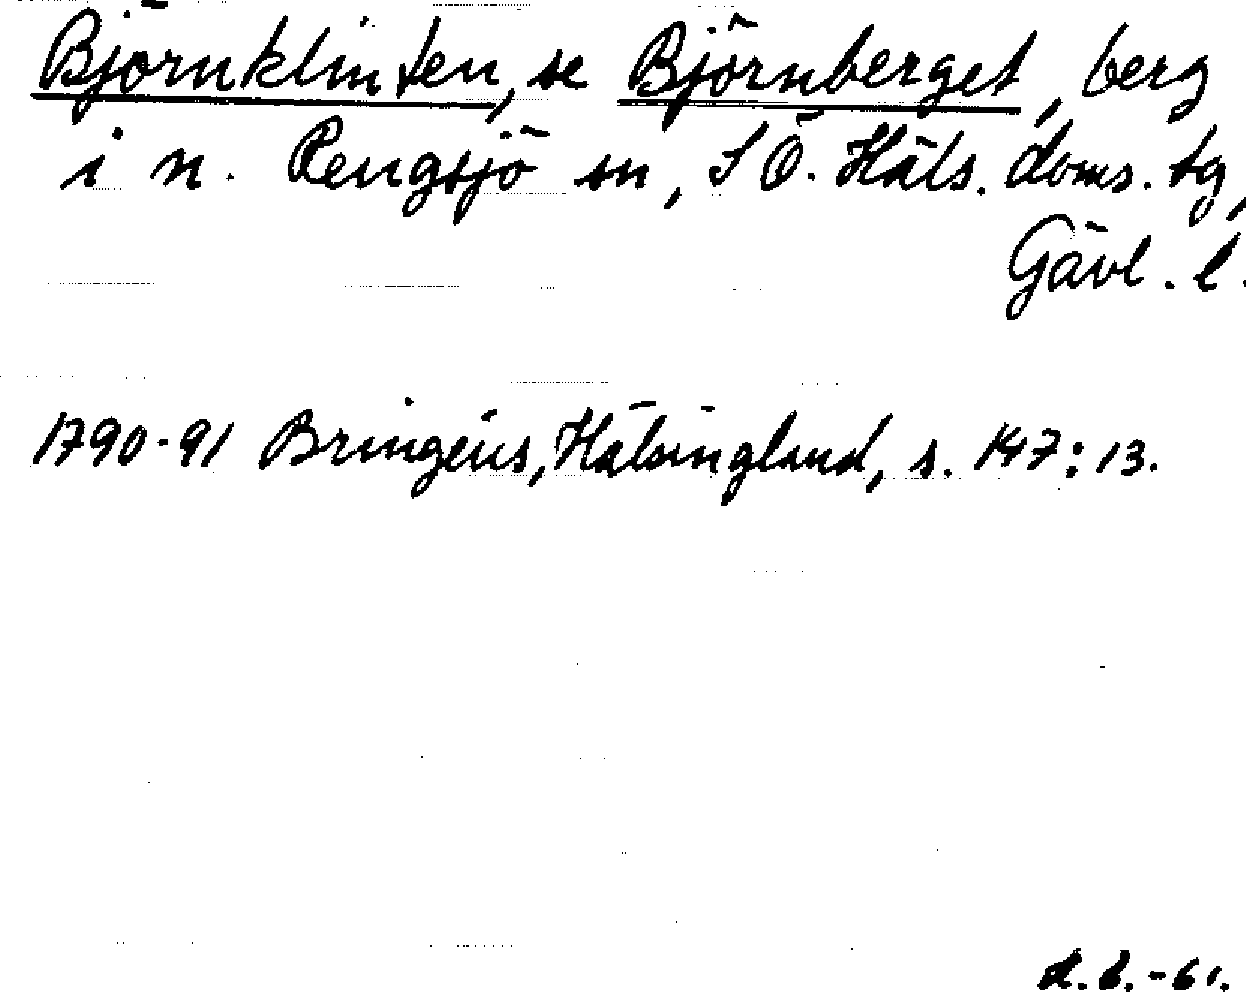 Björnklinten, se Björnberget, berg
i n. Rengsjö sn, S Ö. Häls. doms. tg,
Gävl. l.
1790-91 Bringéus, Hälsingland, s. 147:13.
-61.